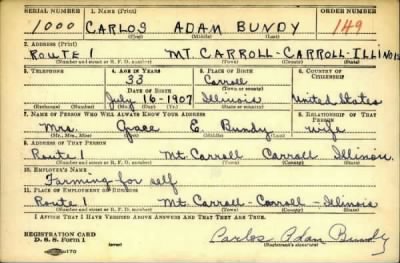 SERIAL NUMBER 1. NAME (Print) ORDER NUMBER
1000 CARLOS ADAM BUNDY 149
(First) (Middle) (Last)
2. ADDRESS (Print)
ROUTE 1 MT. CARROLL-CARROLL-ILLINOIS
(Number and street or R. F. D. number) (Town) (County) (State)
3. TELEPHONE 4. AGE IN YEARS 5. PLACE OF BIRTH 6. COUNTRY OF CITIZENSHIP
33 Carroll
(Town or county)
DATE OF BIRTH
July 16-1907 Illinois United States
(Exchange) (Number) (Mo.) (Day) (Yr.) (State or country)
7. NAME OF PERSON WHO WILL ALWAYS KNOW YOUR ADDRESS 8. RELATIONSHIP OF THAT PERSON
Mrs. Grace E. Bundy wife
(Mr., Mrs., Miss) (First) (Middle) (Last)
9. ADDRESS OF THAT PERSON
Route 1 Mt Carroll Carroll Illinois.
(Number and street or R. F. D. number) (Town) (County) (State)
10. EMPLOYER'S NAME
Farming for self
11. PLACE OF EMPLOYMENT OR BUSINESS
Route 1 Mt Carroll-Carroll-Illinois
(Number and street or R. F. D. number) (Town) (County) (State)
I AFFIRM THAT I HAVE VERIFIED ABOVE ANSWERS AND THAT THEY ARE TRUE.
REGISTRATION CARD
D. S. S. Form 1 Carlos Adam Bundy
(Registrant's signature)